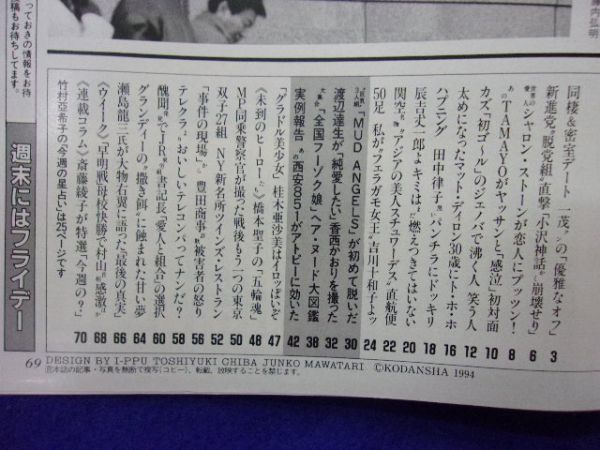 同棲&密室デート 一茂の「優雅なオフ」 3
新進党“脱党組”直撃「小沢神話の崩壊せり」 6
世界の愛人シャロン・ストーンが恋人にブッツン! 8
あのTAMAYOがヤッサンと「感泣」初対面 10
カズ“初ゴール”のジェノバで沸く人 笑う人 12
太めになったマット・ディロン30歳にト・ホ・ホ 16
ハプニング 田中律子“パンチラにドッキリ 18
辰吉丈一郎よキミはまだ燃えつきてはいない 20
関空発“アジアの美人スチュワーデス”直航便 22
50足 私が“フェラガモ女王”吉川十和子よッ 24
「MUD ANGELS」が初めて脱いだ 30
渡辺達生が「純愛したい」香西かおりを撮った 32
「全国フーゾク娘」ヘア・ヌード大図鑑 38
実例報告 あの西安851がアトピーに効いた 42
「グラドル美少女」桂木亜沙美はイロっぽいぞ 47
〈未到のヒーロー〉橋本聖子の「五輪魂」 48
MP同乗警察官が撮った戦後もう一つの東京 50
双子27組 NY新名所ツインズ・レストラン 52
「事件の現場」 豊田商事 被害者の怒り 56
テレクラよりおいしいテレコンパってナンだ? 58
醜聞でJR書記長「愛人と組合」の選択 60
グランディーの“撒き餌”に蝕された甘い夢 64
瀬島龍三氏が大物右翼に語った「最後の真実」 66
〈ウイーク〉「早明戦母校快勝で村山 感激」 68
〈連載コラム〉斎藤綾子が特選「今週の?」 70
竹村亜希子の「今週の星占い」は25ページです
週末にはフライデー
っておきの情報をお待
稿もお待ちしてます。
69
DESIGN BY I-PPU TOSHIYUKI CHIBA JUNKO MAWATARI ©KODANSHA 1994
本誌の記事・写真を無断で複写(コピー)、転載、放映することを禁じます。